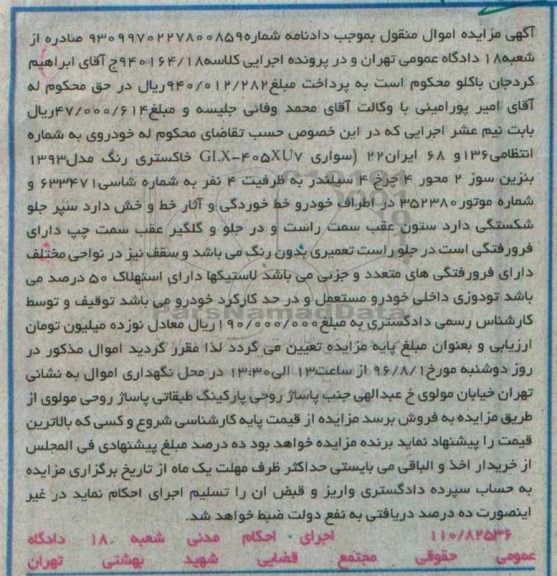 آگهی مزایده اموال منقول بموجب دادنامه شماره۹۳۰۹۹۷۰۲۲۷۸۰۰۸۵۹ صادره از
شعبه۱۸ دادگاه عمومی تهران و در پرونده اجرایی کلاسه۹۴۰۱۶۴/۱۸ج آقای ابراهیم
کردجان باکلو محکوم است به پرداخت مبلغ۹۴۰/۰۱۲/۲۸۲ریال در حق محکوم له
آقای امیر پورامینی با وکالت آقای محمد وفائی جلیسه و مبلغ۴۷/۰۰۰/۶۱۴ریال
بابت نیم عشر اجرایی که در این خصوص حسب تقاضای محکوم له خودروی به شماره
انتظامی۱۳۶و ۶۸ ایران۲۲ (سواری GLX-۴۰۵XU۷ خاکستری رنگ مدل۱۳۹۳
بنزین سوز ۲ محور ۴ چرخ ۴ سیلندر به ظرفیت ۴ نفر به شماره شاسی۶۳۳۴۷۱ و
شماره موتور۳۵۲۳۸۰ در اطراف خودرو خط خوردگی و آثار خط و خش دارد سپر جلو
شکستگی دارد ستون عقب سمت راست و در جلو و گلگیر عقب سمت چپ دارای
فرورفتگی است در جلو راست تعمیری بدون رنگ می باشد و سقف نیز در نواحی مختلف
دارای فرورفتگی های متعدد و جزیی می باشد لاستیکها دارای استهلاک ۵۰ درصد می
باشد تودوزی داخلی خودرو مستعمل و در حد کارکرد خودرو می باشد توقیف و توسط
کارشناس رسمی دادگستری به مبلغ۱۹۰/۰۰۰/۰۰۰ریال معادل نوزده میلیون تومان
ارزیابی و بعنوان مبلغ پایه مزایده تعیین می گردد لذا مقرر گردید اموال مذکور در
روز دوشنبه مورخ۹۶/۸/۱ از ساعت۱۳ الی۱۳:۳۰ در محل نگهداری اموال به نشانی
تهران خیابان مولوی خ عبدالهی جنب پاساژ روحی پارکینگ طبقاتی پاساژ روحی مولوی از
طریق مزایده به فروش برسد مزایده از قیمت پایه کارشناسی شروع و کسی که بالاترین
قیمت را پیشنهاد نماید برنده مزایده خواهد بود ده درصد مبلغ پیشنهادی فی المجلس
از خریدار اخذ و الباقی می بایستی حداکثر ظرف مهلت یک ماه از تاریخ برگزاری مزایده
به حساب سپرده دادگستری واریز و قبض ان را تسلیم اجرای احکام نماید در غیر
اینصورت ده درصد دریافتی به نفع دولت ضبط خواهد شد.
۱۱۰/۸۲۵۳۶ اجرای احکام مدنی شعبه ۱۸ دادگاه
عمومی حقوقی مجتمع قضایی شهید بهشتی تهران
ParsNamadData